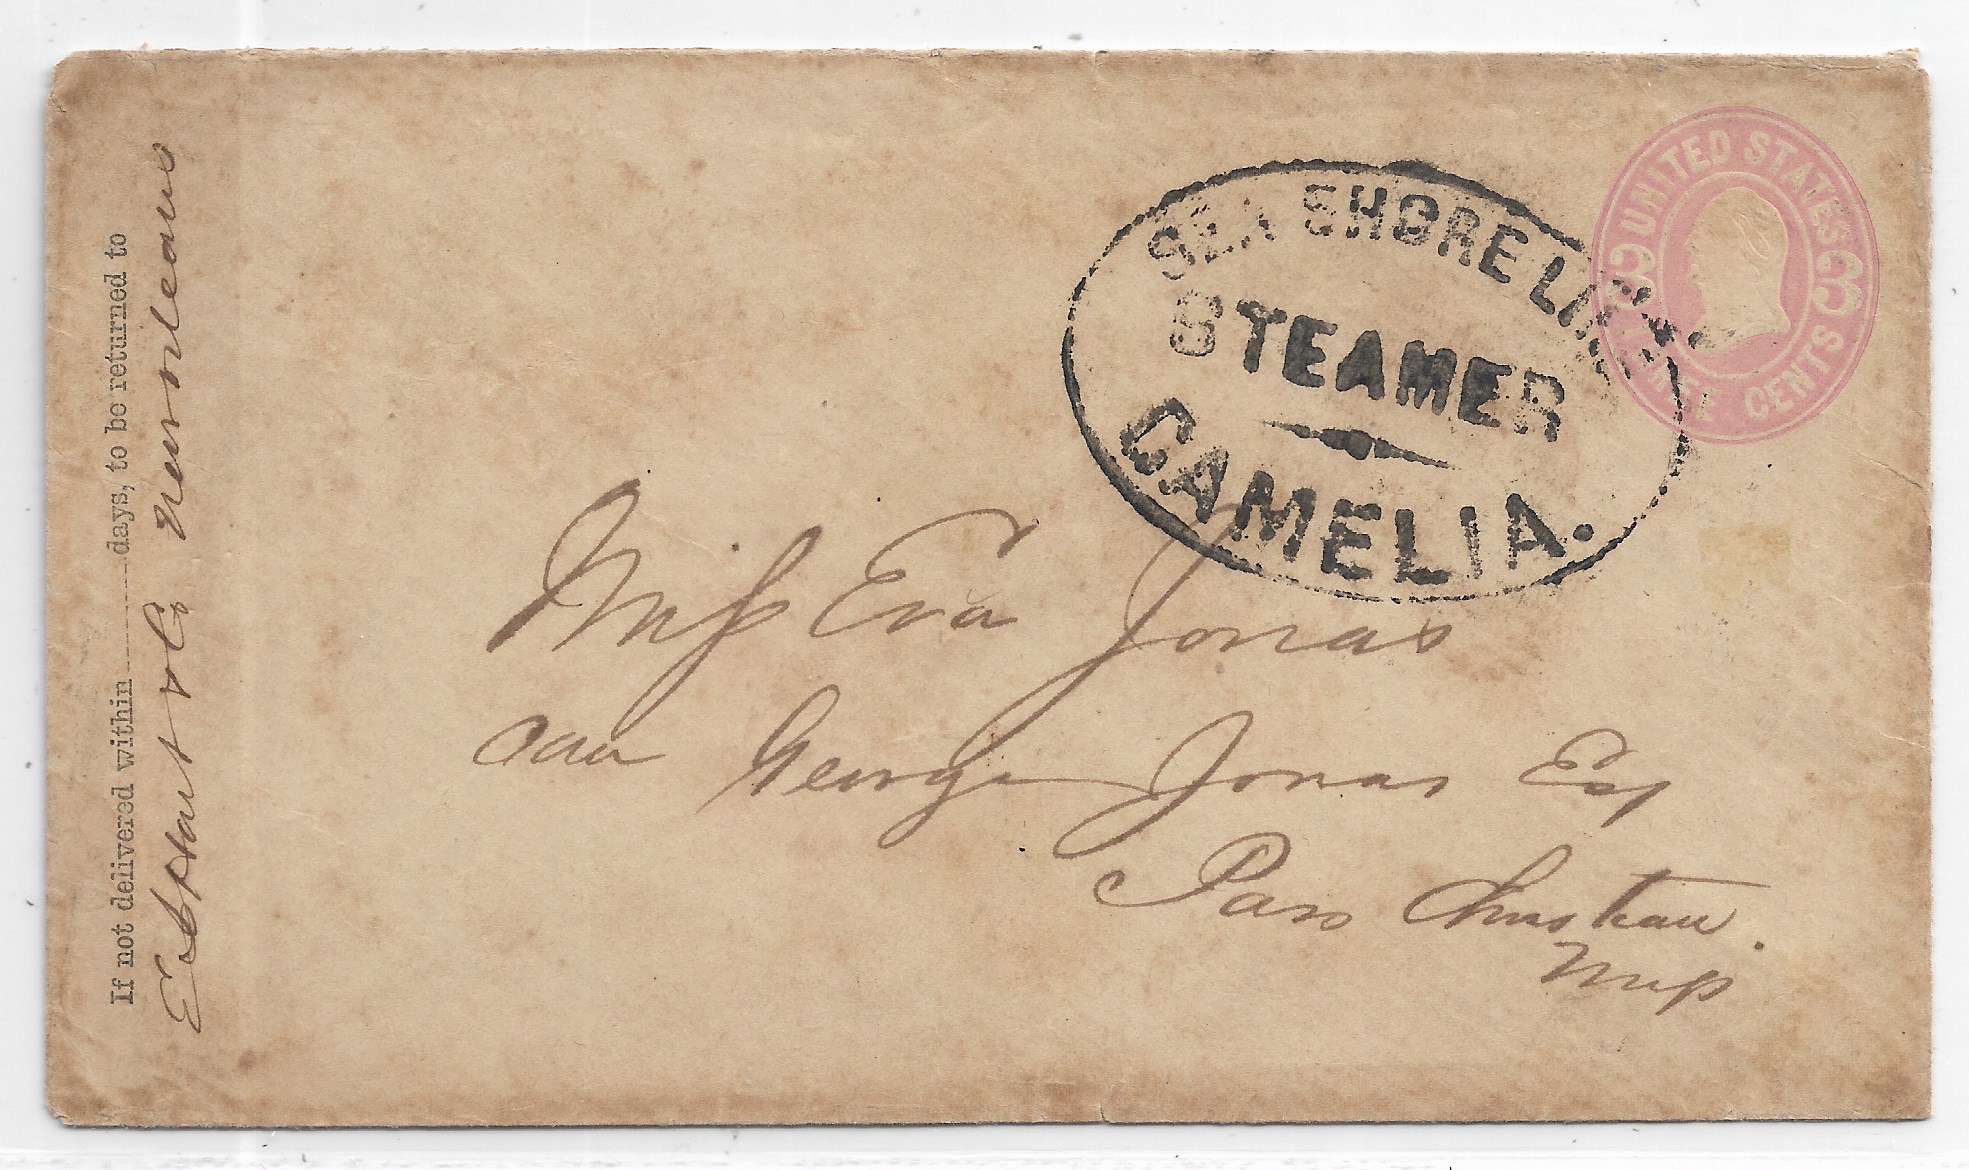 If not delivered within ........ days, to be returned to
E. J. Hart & Co Neworleans
UNITED STATES
3 3
THREE CENTS
SEA SHORE LINE
STEAMER
CAMELIA.
Miss Eva Jonas
care George Jonas Esq
Pass Christian.
Misp